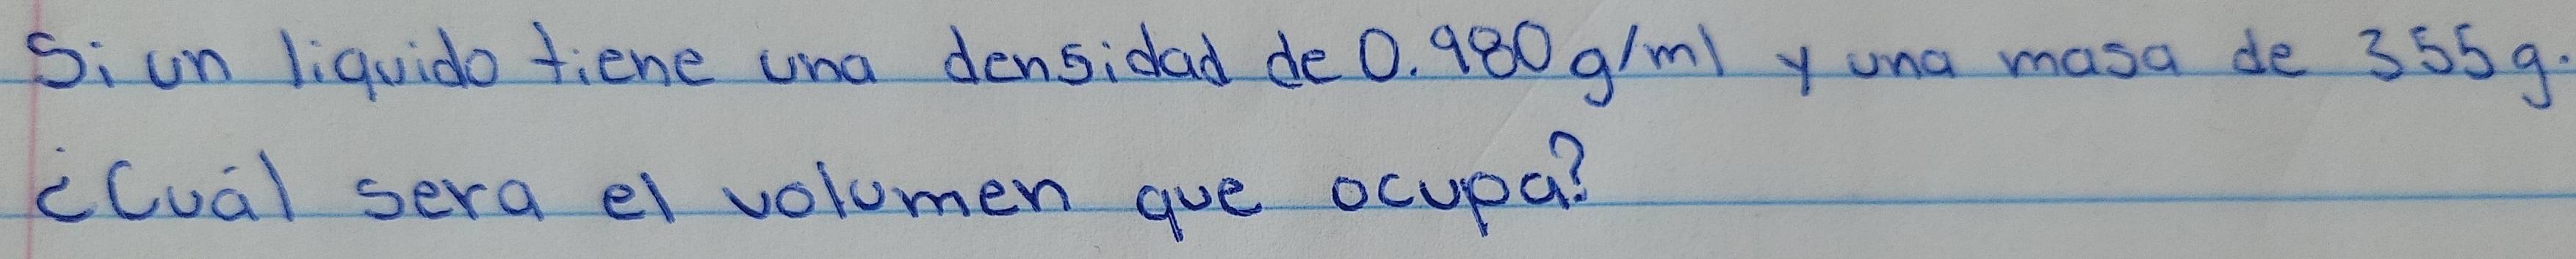 Si un liquido tiene una densidad de 0.980 g/ml y una masa de 355g.
¿Cuál sera el volumen que ocupa?